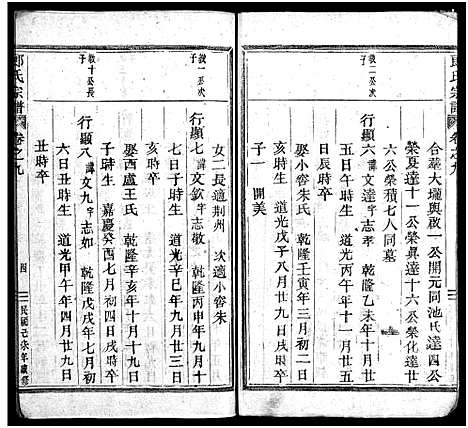 郎氏宗譜 卷之九
合葬大壠與啟一公開元同池氏達四公
榮夏達十三公榮眞達十六公榮化達廿
六公榮積七人同墓
啟二公次子
行顯六 諱文達 字志孝 乾隆乙未年十月廿
五日午時生 道光丙午年十一月廿五
日辰時卒
娶小容朱氏 乾隆壬寅年三月初二日
亥時生 道光戊子八月廿九日戌時卒
子一 開美
女二長適荆州 次適小容朱
啟一公次子
行顯七 諱文欽 字志敬 乾隆丙申年九月十
七日子時生 道光辛巳年九月三日
亥時卒
娶西盧王氏 乾隆辛亥年十月十九日
子時生 嘉慶癸酉七月初四日戌時卒
啟十公長子
行顯八 諱文九 字志如 乾隆戊戌年七月初
六日丑時生 道光甲午年四月廿九日
丑時卒
郎氏宗譜 卷之九 四 民國己未年續修